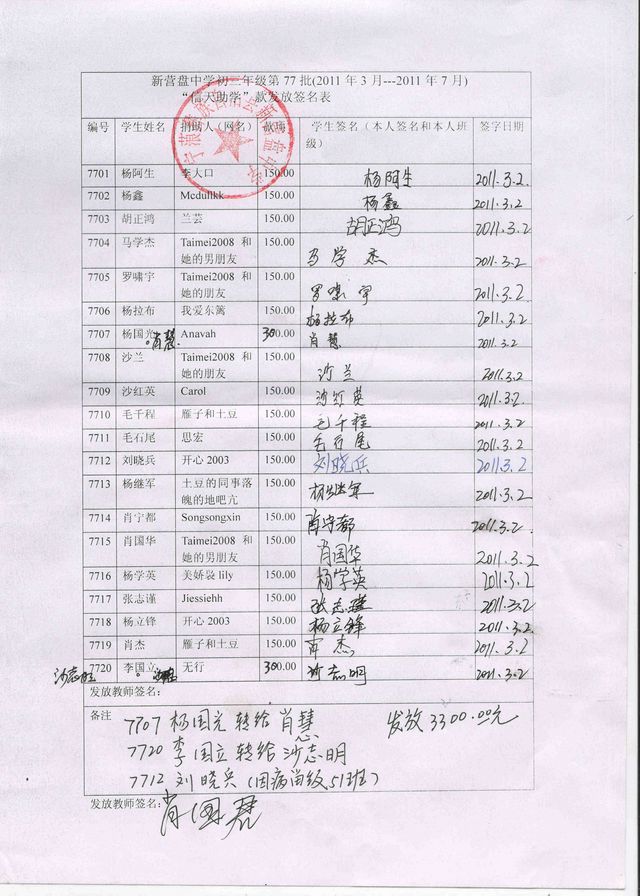 新营盘中学初三年级第77批(2011年3月---2011年7月)
“信天助学”款发放签名表
编号 学生姓名 捐助人（网名） 款项 学生签名（本人签名和本人班级） 签字日期
7701 杨阿生 李大口 150.00 杨阿生 2011.3.2
7702 杨鑫 Mcdullkk 150.00 杨鑫 2011.3.2
7703 胡正鸿 兰芸 150.00 胡正鸿 2011.3.2
7704 马学杰 Taimei2008 和她的男朋友 150.00 马学杰 2011.3.2
7705 罗啸宇 Taimei2008 和她的朋友 150.00 罗啸宇 2011.3.2
7706 杨拉布 我爱东篱 150.00 杨拉布 2011.3.2
7707 杨国光 肖慧 Anavah 300.00 肖慧 2011.3.2
7708 沙兰 Taimei2008 和她的朋友 150.00 沙兰 2011.3.2
7709 沙红英 Carol 150.00 沙红英 2011.3.2
7710 毛千程 雁子和土豆 150.00 毛千程 2011.3.2
7711 毛石尾 思宏 150.00 毛石尾 2011.3.2
7712 刘晓兵 开心2003 150.00 刘晓兵 2011.3.2
7713 杨继军 土豆的同事落魄的地吧亢 150.00 杨继军 2011.3.2
7714 肖宁都 Songsongxin 150.00 肖宁都 2011.3.2
7715 肖国华 Taimei2008 和她的男朋友 150.00 肖国华 2011.3.2
7716 杨学英 美娇袅 lily 150.00 杨学英 2011.3.2
7717 张志谨 Jiessiehh 150.00 张志谨 2011.3.2
7718 杨立锋 开心2003 150.00 杨立锋 2011.3.2
7719 肖杰 雁子和土豆 150.00 肖杰 2011.3.2
7720 李国立 无行 300.00 沙志明 2011.3.2
发放教师签名：
备注
7707 杨国光转给肖慧 发放3300.00元
7720 李国立转给沙志明
7712 刘晓兵（因病留级51班）
发放教师签名：